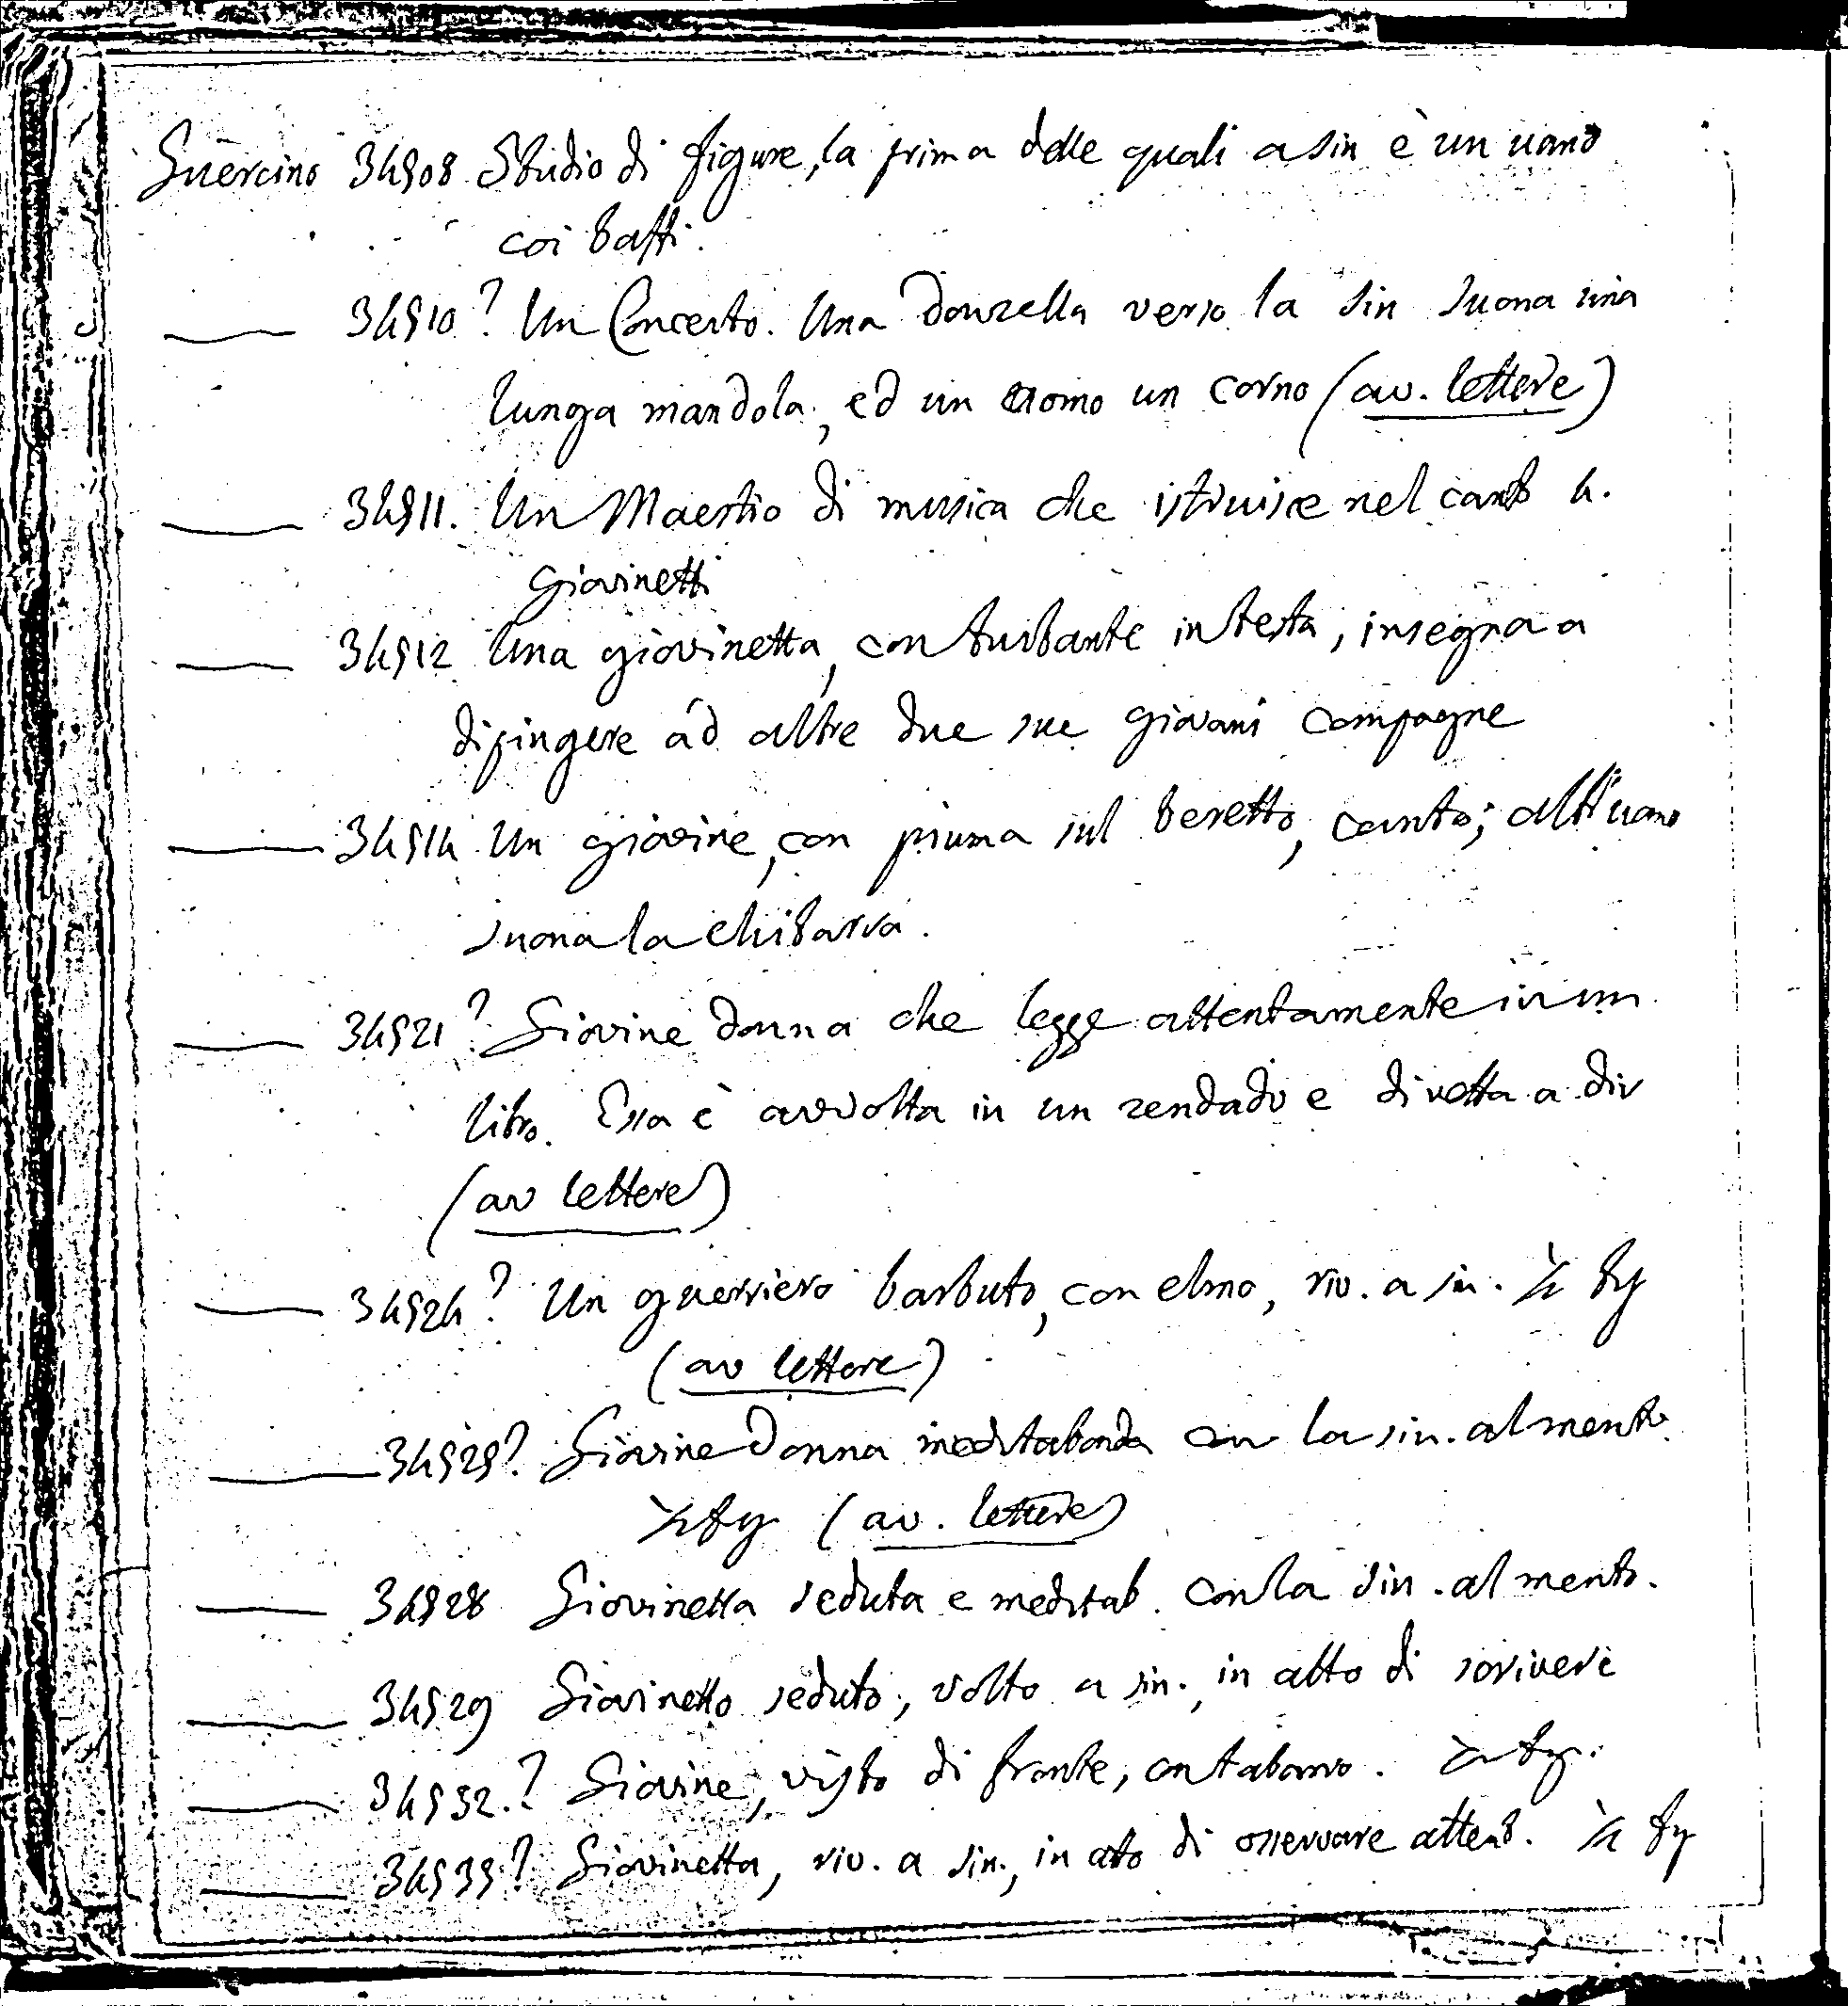 Guercino 34508 Studio di figure, la prima delle quali a sin è un uomo
coi baffi.
—— 34510? Un Concerto. Una donzella verso la sin suona una
lunga mandola, ed un uomo un corno (av. lettere)
—— 34511. Un Maestro di musica che istruisce nel canto 4.
giovinetti
—— 34512 Una giovinetta, con turbante in testa, insegna a
dipingere ad altre due sue giovani compagne
—— 34514 Un giovine, con piuma sul beretto, canta; altr'uomo
suona la chitarra.
—— 34521? Giovine donna che legge attentamente in un
libro. Essa è avvolta in un zendado e diretta a dir
(av lettere)
—— 34524? Un guerriero barbuto, con elmo, riv. a sin. ½ fig
(av lettere)
—— 34525? Giovine donna meditabonda con la sin. al mento.
½ fig (av. lettere)
—— 34528 Giovinetta seduta e meditab. con la sin. al mento.
—— 34529 Giovinetto seduto, volto a sin., in atto di scrivere
—— 34532.? Giovine, visto di fronte, ½ fig.
—— 34535? Giovinetta, riv. a sin., in atto di osservare attent. ½ fig